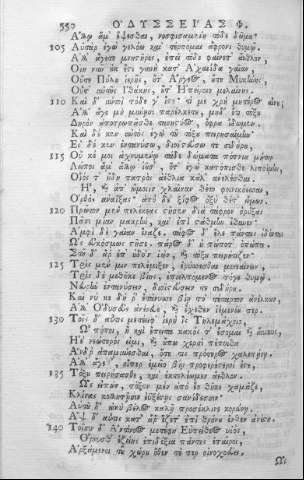 550 ΟΔΥΣΣΕΙΑΣ Φ.
Ἄλλῳ ἅμ' ἕψεσθαι, νοσφισσαμένη τόδε δῶμα·
105 Αὐτὰρ ἐγὼ γελόω καὶ τέρπομαι ἄφρονι θυμῷ.
Ἀλλ' ἄγετε μνηστῆρες, ἐπεὶ τόδε φαίνετ' ἄεθλον,
Οἵη νῦν οὐκ ἔστι γυνὴ κατ' Ἀχαιΐδα γαῖαν,
Οὔτε Πύλου ἱερῆς, οὔτ' Ἄργεος, οὔτε Μυκήνης,
Οὔτ' αὐτῆς Ἰθάκης, οὔτ' Ἠπείροιο μελαίνης.
110 Καὶ δ' αὐτοὶ τόδε γ' ἴστε· τί με χρὴ μητέρος αἴνου;
Ἀλλ' ἄγε μὴ μύνῃσι παρέλκετε, μηδ' ἔτι τόξου
Δηρὸν ἀποτρωπᾶσθε τανυστύος, ὄφρα ἴδωμεν.
Καὶ δέ κεν αὐτὸς ἐγὼ τοῦ τόξου πειρησαίμην·
Εἰ δέ κεν ἐντανύσω, διοϊστεύσω τε σιδήρου,
115 Οὔ κέ μοι ἀχνυμένῳ τάδε δώματα πότνια μήτηρ
Λείποι ἅμ' ἄλλῳ ἰοῦσ', ὅτ' ἐγὼ κατόπισθε λιποίμην
Οἷός τ' ἤδη πατρὸς ἀέθλια κάλ' ἀνελέσθαι.
Ἦ, καὶ ἀπ' ὤμοιϊν χλαῖναν θέτο φοινικόεσσαν,
Ὀρθὸς ἀναΐξας· ἀπὸ δὲ ξίφος ὀξὺ θέτ' ὤμων.
120 Πρῶτον μὲν πελέκεας στῆσεν διὰ τάφρον ὀρύξας
Πᾶσι μίαν μακρὴν, καὶ ἐπὶ στάθμην ἴθυνεν·
Ἀμφὶ δὲ γαῖαν ἔναξε. τάφος δ' ἕλε πάντας ἰδόντας
Ὡς εὐκόσμως στῆσε· πάρος δ' οὐ πώποτ' ὀπώπει.
Στῆ δ' ἄρ' ἐπ' οὐδὸν ἰὼν, καὶ τόξου πειρήτιζε·
125 Τρὶς μέν μιν πελέμιξεν, ἐρύσσεσθαι μενεαίνων,
Τρὶς δὲ μεθῆκε βίης, ἐπιελπόμενος τόγε θυμῷ,
Νευρὴν ἐντανύσειν, διοϊστεύσειν τε σιδήρου.
Καί νύ κε δή ῥ' ἐτάνυσσε βίῃ τὸ τέταρτον ἀνέλκων,
Ἀλλ' Ὀδυσεὺς ἀνένευε, καὶ ἔσχεθεν ἱέμενόν περ.
130 Τοῖς δ' αὖτις μετέειφ' ἱερὴ ἲς Τηλεμάχοιο,
Ὢ πόποι, ἦ καὶ ἔπειτα κακός τ' ἔσομαι καὶ ἄκικυς,
Ἠὲ νεώτερός εἰμι, καὶ οὔπω χερσὶ πέποιθα
Ἄνδρ' ἀπαμύνασθαι, ὅτε τις πρότερος χαλεπήνῃ.
Ἀλλ' ἄγεθ', οἵπερ ἐμεῖο βίῃ προφερέστεροί ἐστε,
135 Τόξου πειρήσασθε, καὶ ἐκτελέωμεν ἄεθλον.
Ὣς εἰπὼν, τόξον μὲν ἀπὸ ἕο θῆκε χαμᾶζε,
Κλίνας κολλητῇσιν ἐϋξέστῃς σανίδεσσιν·
Αὐτοῦ δ' ὠκὺ βέλος καλῇ προσέκλινε κορώνῃ.
Ἂψ δ' αὖτις κατ' ἄρ' ἕζετ' ἐπὶ θρόνου ἔνθεν ἀνέστη.
140 Τοῖσιν δ' Ἀντίνοος μετέφη Εὐπείθεος υἱός,
Ὄρνυσθ' ἑξείης ἐπιδέξια πάντες ἑταῖροι,
Ἀρξάμενοι τοῦ χώρου ὅθεν τέ περ οἰνοχοεύει.
Ὣς